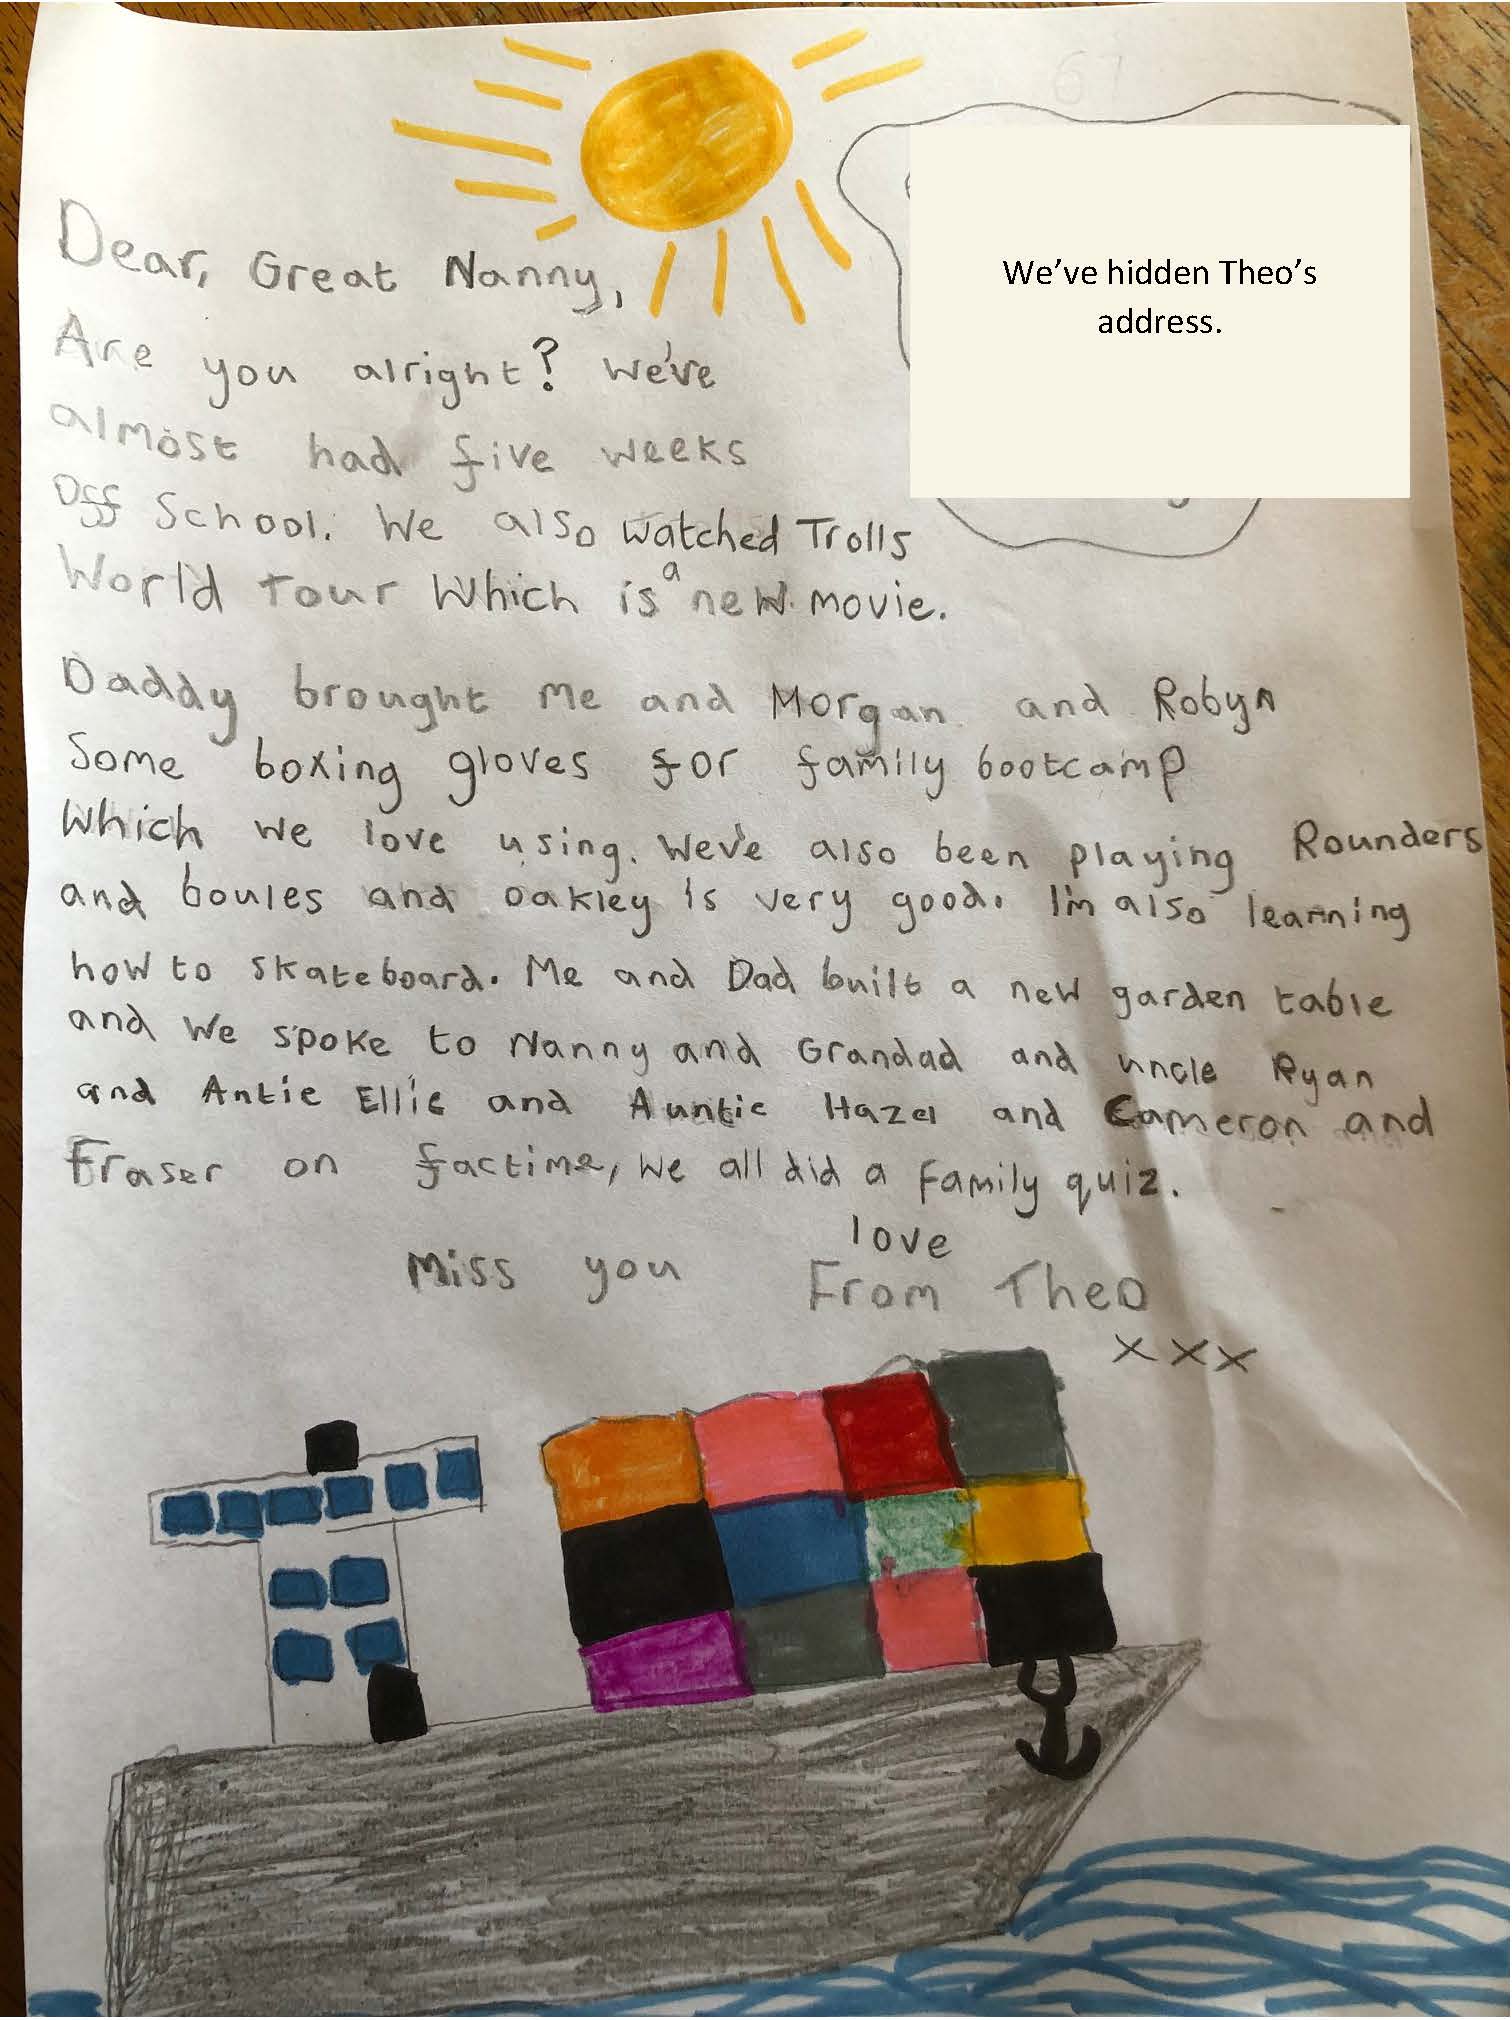 67
We've hidden Theo's
address.
Dear, Great Nanny,
Are you alright? We've
almost had five weeks
Off School. We also watched Trolls
World Tour Which is a new movie.
Daddy brought me and Morgan and Robyn
Some boxing gloves for family bootcamp
Which we love using. We've also been playing Rounders
and boules and Oakley is very good. I'm also learning
how to skateboard. Me and Dad built a new garden table
and We spoke to Nanny and Grandad and uncle Ryan
and Antie Ellie and Auntie Hazel and Cameron and
Fraser on factime, We all did a Family quiz.
Miss you love
From Theo
xxx